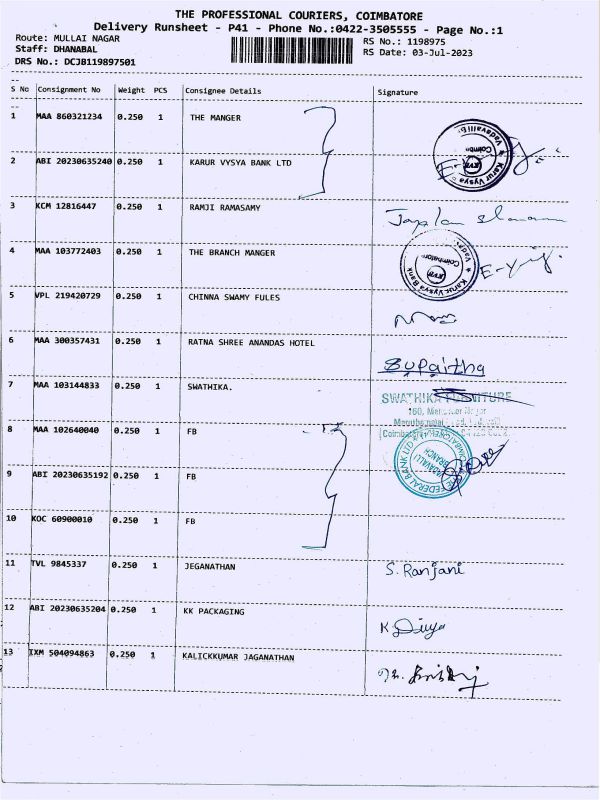 THE PROFESSIONAL COURIERS, COIMBATORE
Delivery Runsheet - P41 - Phone No.:0422-3505555 - Page No.:1
Route: MULLAI NAGAR RS No.: 1198975
Staff: DHANABAL RS Date: 03-Jul-2023
DRS No.: DCJB119897501
S No Consignment No Weight PCS Consignee Details Signature
1 MAA 860321234 0.250 1 THE MANGER
2 ABI 20230635240 0.250 1 KARUR VYSYA BANK LTD
Karur Vysya
Vadavalli
3 KCM 12816447 0.250 1 RAMJI RAMASAMY
4 MAA 103772403 0.250 1 THE BRANCH MANGER
Karur Vysya Bank
Coimbatore
5 VPL 219420729 0.250 1 CHINNA SWAMY FULES
6 MAA 300357431 0.250 1 RATNA SHREE ANANDAS HOTEL
Supaitha
7 MAA 103144833 0.250 1 SWATHIKA.
SWATHIKA FURNITURE
160,
8 MAA 102640040 0.250 1 FB
THE FEDERAL BANK LTD
BRANCH
9 ABI 20230635192 0.250 1 FB
10 KOC 60900010 0.250 1 FB
11 TVL 9845337 0.250 1 JEGANATHAN S. Ranjani
12 ABI 20230635204 0.250 1 KK PACKAGING K Divya
13 IXM 504094863 0.250 1 KALICKKUMAR JAGANATHAN